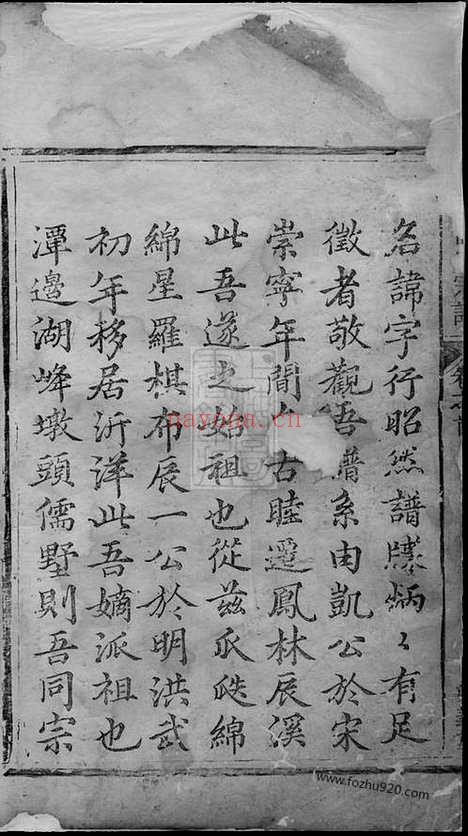 名諱字行昭然譜牒炳〻有足
徵者敬觀吾譜系由凱公於宋
崇寧年間 古睦遷鳳林辰溪
此吾遂之始祖也從茲瓜瓞綿
綿星羅棋布辰一公於明洪武
初年移居沂洋此吾嫡派祖也
潭邊湖峰墩頭儒墅則吾同宗
nayona.cn
www.fozhu920.com